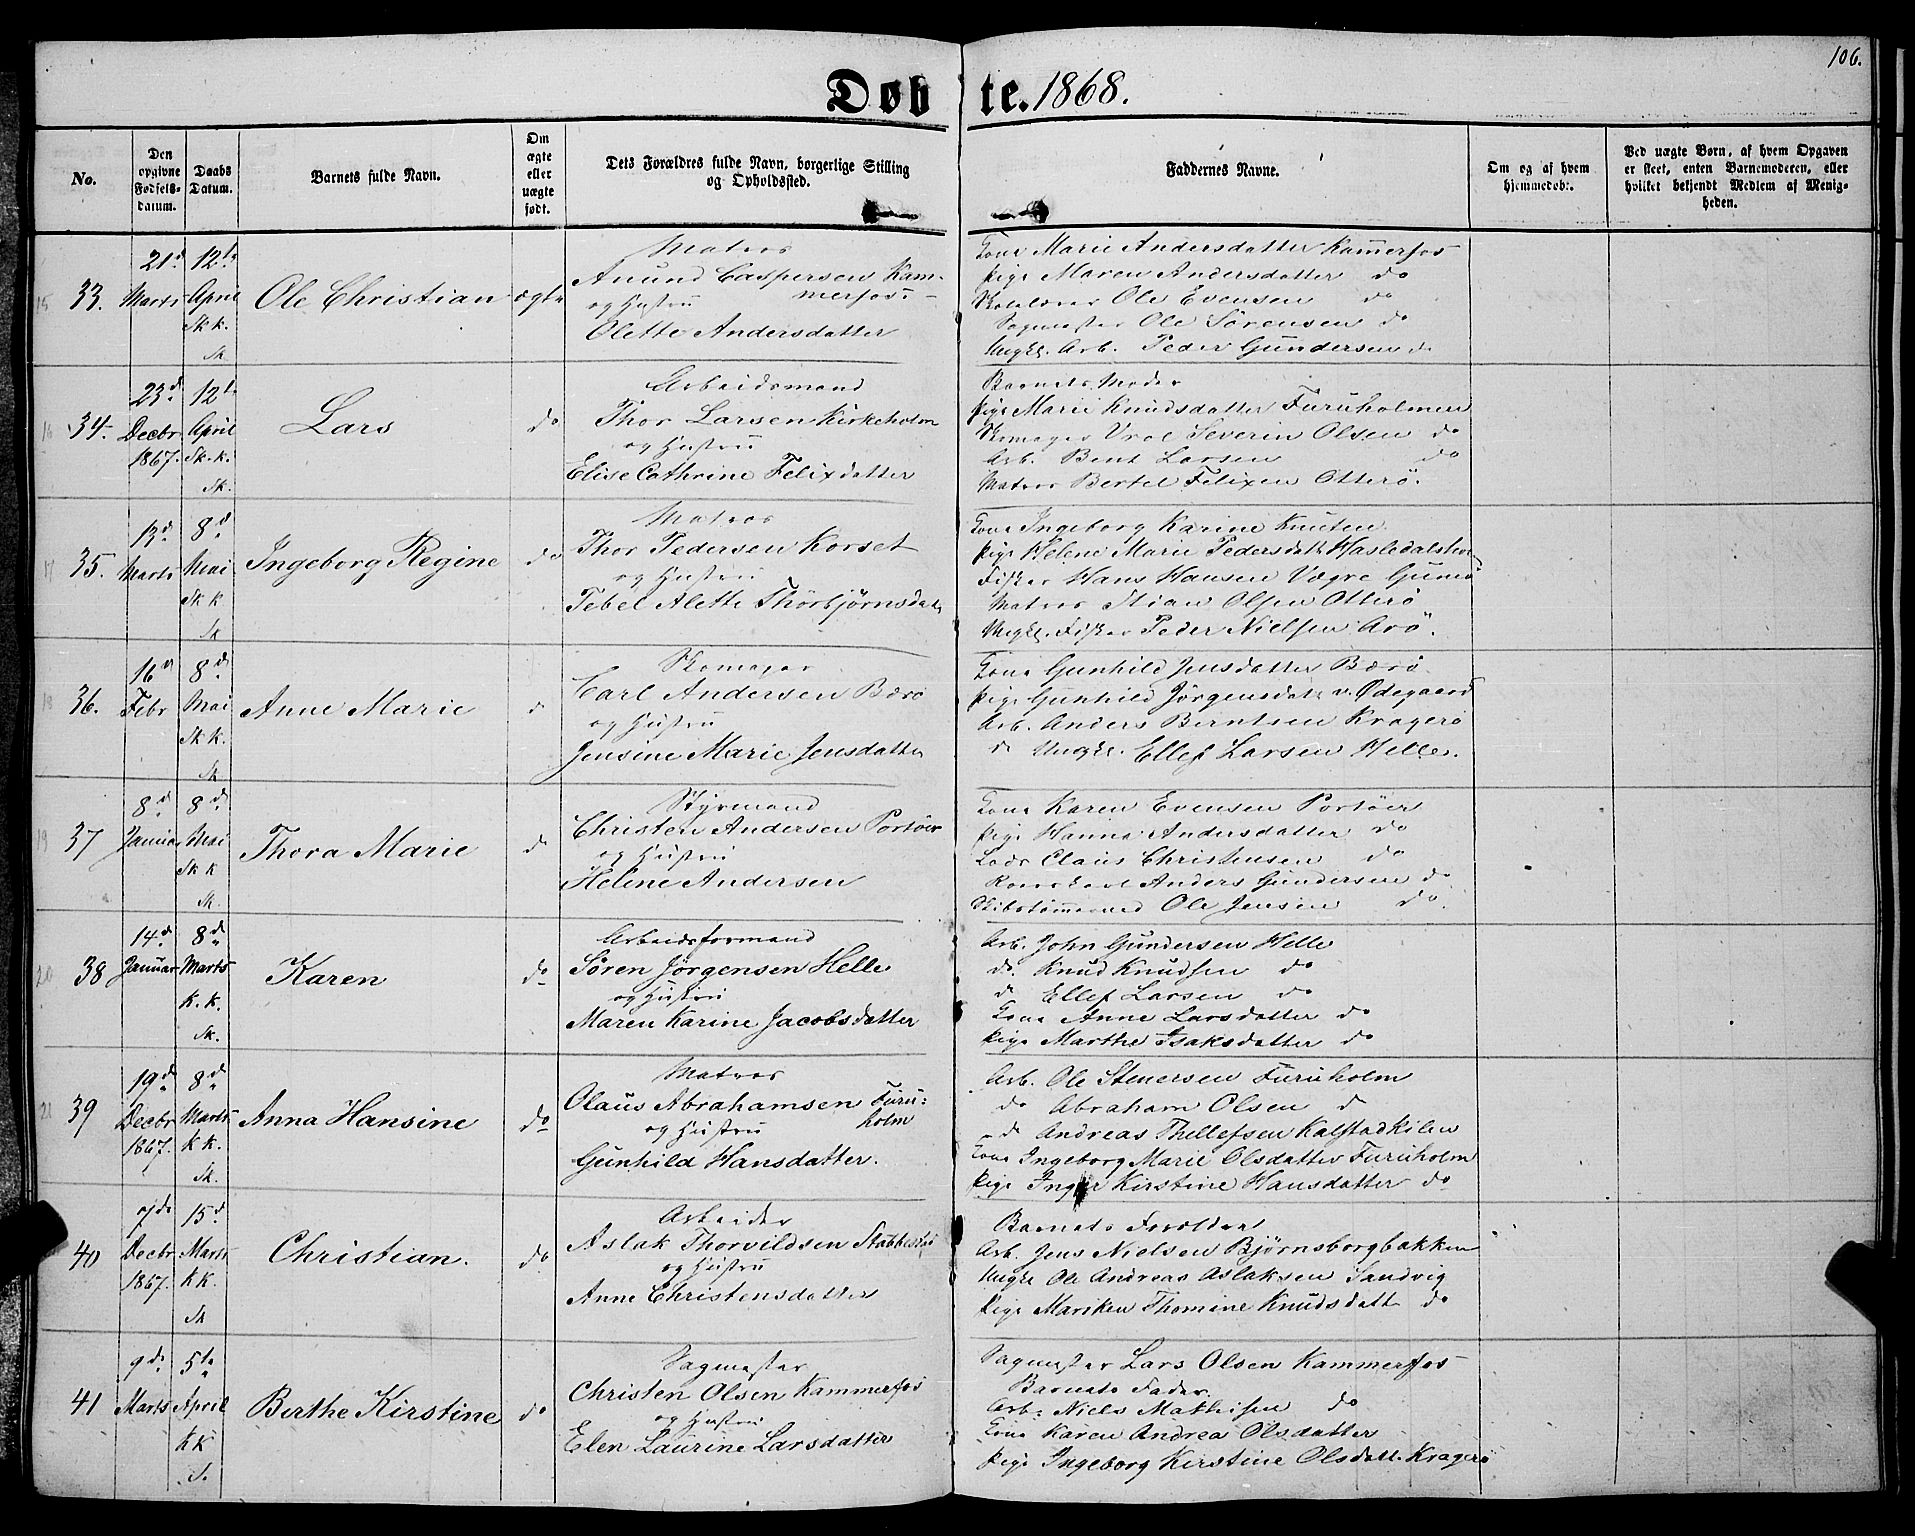 106.
Døbte. 1868.
No.
Den opgivne Fødsels-datum.
Daabs Datum.
Barnets fulde Navn.
Om ægte eller uægte født.
Dets Forældres fulde Navn, borgerlige Stilling og Opholdssted.
Faddernes Navne.
Om og af hvem hjemmedøbt.
Ved uægte Børn, af hvem Opgaven er skeet, enten Barnemoderen, eller hvilket bekjendt Medlem af Menigheden.
15 33. 21d Marts 12te April Sk. k. Sk. Ole Christian ægte
Matros
Anund Caspersen Kammerfos
og Hustru
Olette Andersdatter
Kone Marie Andersdatter Kammerfos
Pige Maren Andersdatter do
Skolelærer Ole Evensen do
Sagmester Ole Sørensen do
Ungkl. Arb. Peder Gundersen do
16 34. 23d Decbr 1867. 12te April Sk. k. Sk. Lars do
Arbeidsmand
Thor Larsen Kirkeholm
og Hustru
Elise Cathrine Felixdatter
Barnets Moder
Pige Marie Knudsdatter Furuholmen
Skomager Severin Olsen do
Arb. Bent Larsen do
Matros Bertel Felixen Otterö.
17 35. 13d Marts 8d Mai Sk k Sk Ingeborg Regine do
Matros
Thor Pedersen Korset
og Hustru
Tebel Alette Thorbjørnsdatt
Kone Ingeborg Karine Knutsen
Pige Helene Marie Pedersdatt
Fisker Hans Hansen Vægre Gumö
Matros Stian Olsen Otterö
Ungkl. Fisker Peder Nielsen Arö.
18 36. 16d Febr 8d Mai Sk k. Sk Anne Marie d
Skomager
Carl Andersen Bærö
og Hustru
Jensine Marie Jensdatter
Kone Gunhild Jensdatter Bærö
Pige Gunhild Jörgensdatt v. Ødegaard
Arb. Anders Berntsen Kragerö
d Ungkl. Ellef Larsen Helle.
19 37 8d Januar 8d Mai Sk k Sk. Thora Marie d
Styrmand
Christen Andersen Portöer
og Hustru
Helene Andersen
Kone Karen Evensen Portöer
Pige Hanna Andersdatter do
Lods Claus Christensen do
Anders Gundersen do
Skibstømmermand Ole Jensen do.
20 38 14d Januar 8d Marts K. k. Sk. Karen do
Arbeidsformand
Søren Jørgensen Helle
og Hustru
Maren Karine Jacobsdatter
Arb. John Gundersen Helle
do. Knud Knudsen do
d Ellef Larsen do
Kone Anne Larsdatter do
Pige Marthe Isaksdatter do
21 39 19d Decbr 1867. 8d Marts K k. Sk. Anna Hansine do
Matros
Olaus Abrahamsen Furuholm
og Hustru
Gunhild Hansdatter.
Arb. Ole Stenersen Furuholm
do Abraham Olsen d
d Andreas Thellefsen Kalstadkilen
Kone Ingeborg Marie Olsdatter Furuholm
Pige Inger Kirstine Hansdatter do
40 7de Decbr 1867. 15d Marts K K. Sk Christian. do
Arbeider
Aslak Thorvildsen Stabbestad
og Hustru
Anne Christensdatter
Barnets Forældre
Arb. Jens Nielsen Bjørnsborgbakken
Ungkl Ole Andreas Aslaksen Sandvig
Pige Mariken Thomine Knudsdatt do
41 9de Marts 5te April K K S. Berthe Kirstine do
Sagmester
Christen Olsen Kammerfos
og Hustru
Elen Laurine Larsdatter
Sagmester Lars Olsen Kammerfos
Barnets Fader.
Arb. Niels Mathisen do
Kone Karen Andrea Olsdatter
Pige Ingeborg Kirstine Olsdatt. Kragerö